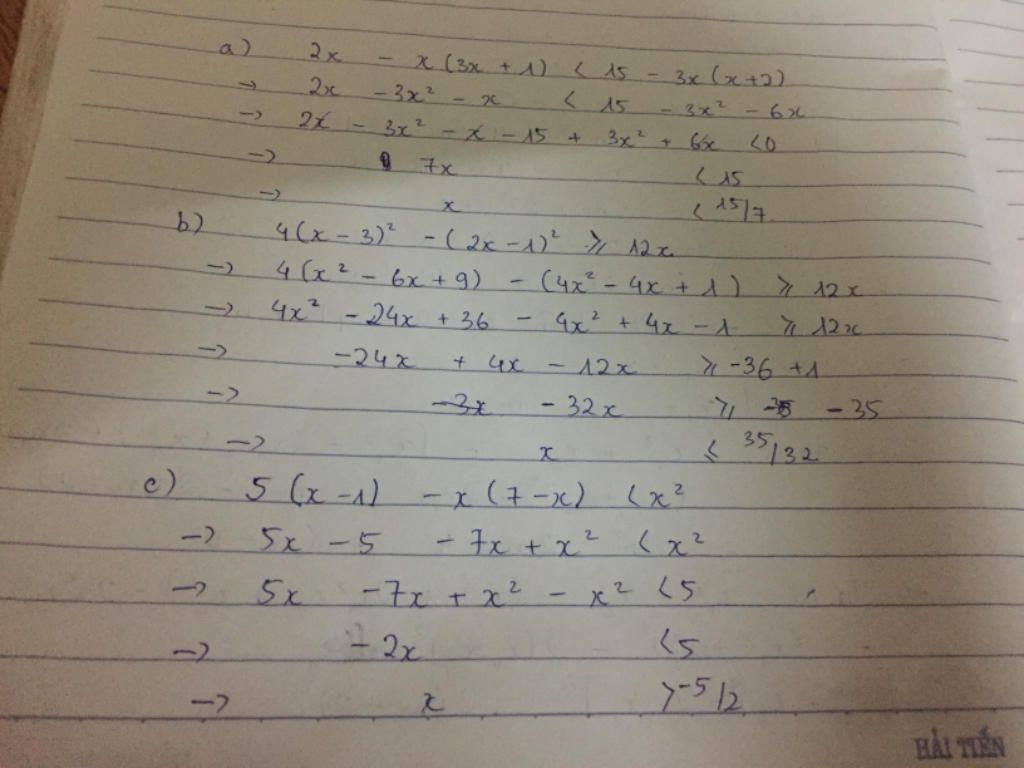 a) 2x - x(3x + 1) < 15 - 3x(x+2)
→ 2x - 3x² - x < 15 - 3x² - 6x
→ 2x - 3x² - x - 15 + 3x² + 6x < 0
→ 7x < 15
→ x < 15/7
b) 4(x - 3)² - (2x - 1)² ≥ 12x
→ 4(x² - 6x + 9) - (4x² - 4x + 1) ≥ 12x
→ 4x² - 24x + 36 - 4x² + 4x - 1 ≥ 12x
→ -24x + 4x - 12x ≥ -36 + 1
→ -32x ≥ -35
→ x ≤ 35/32
c) 5(x - 1) - x(7 - x) < x²
→ 5x - 5 - 7x + x² < x²
→ 5x - 7x + x² - x² < 5
→ -2x < 5
→ x > -5/2
HẢI TIẾN